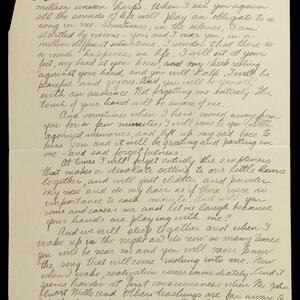 million unseen harps. When I see you again
all the sounds of life will play an obligato to a
song in me. Sometimes, in the silence, I am
startled by visions - you, and I near you, in a
million different situations. I wonder that there is
so much happiness in life. I will sit at your
feet, my head at your knee, and my cheek resting
against your hand, and you will talk. I will be
peaceful and joyous. And you will be yourself
with an audience. Not forgetting me entirely. The
touch of your hand will be aware of me.
And sometimes when I have moved away from
you for a few minutes, I will recall to you
agonized memories, and lift up my sad face to
kiss you and it will be greeting and parting in
one - and sad forgetfulness.
At times I will forget entirely the emptiness
that makes a desolate setting to our little hours
together, and will just chatter and powder
my nose and do my hair as if there were no
importance to each minute. And will you
come and caress me and let me laugh because
your hands are playing with me?
And we will sleep together and when I
wake up in the night as I do now so many times
you will be near me and you will never know
the song that will come rushing into me. Now
when I wake, realization comes immediately. And it
seems harder at first consciousness when Mr. John
Stuart Mills and others teachings are far away to